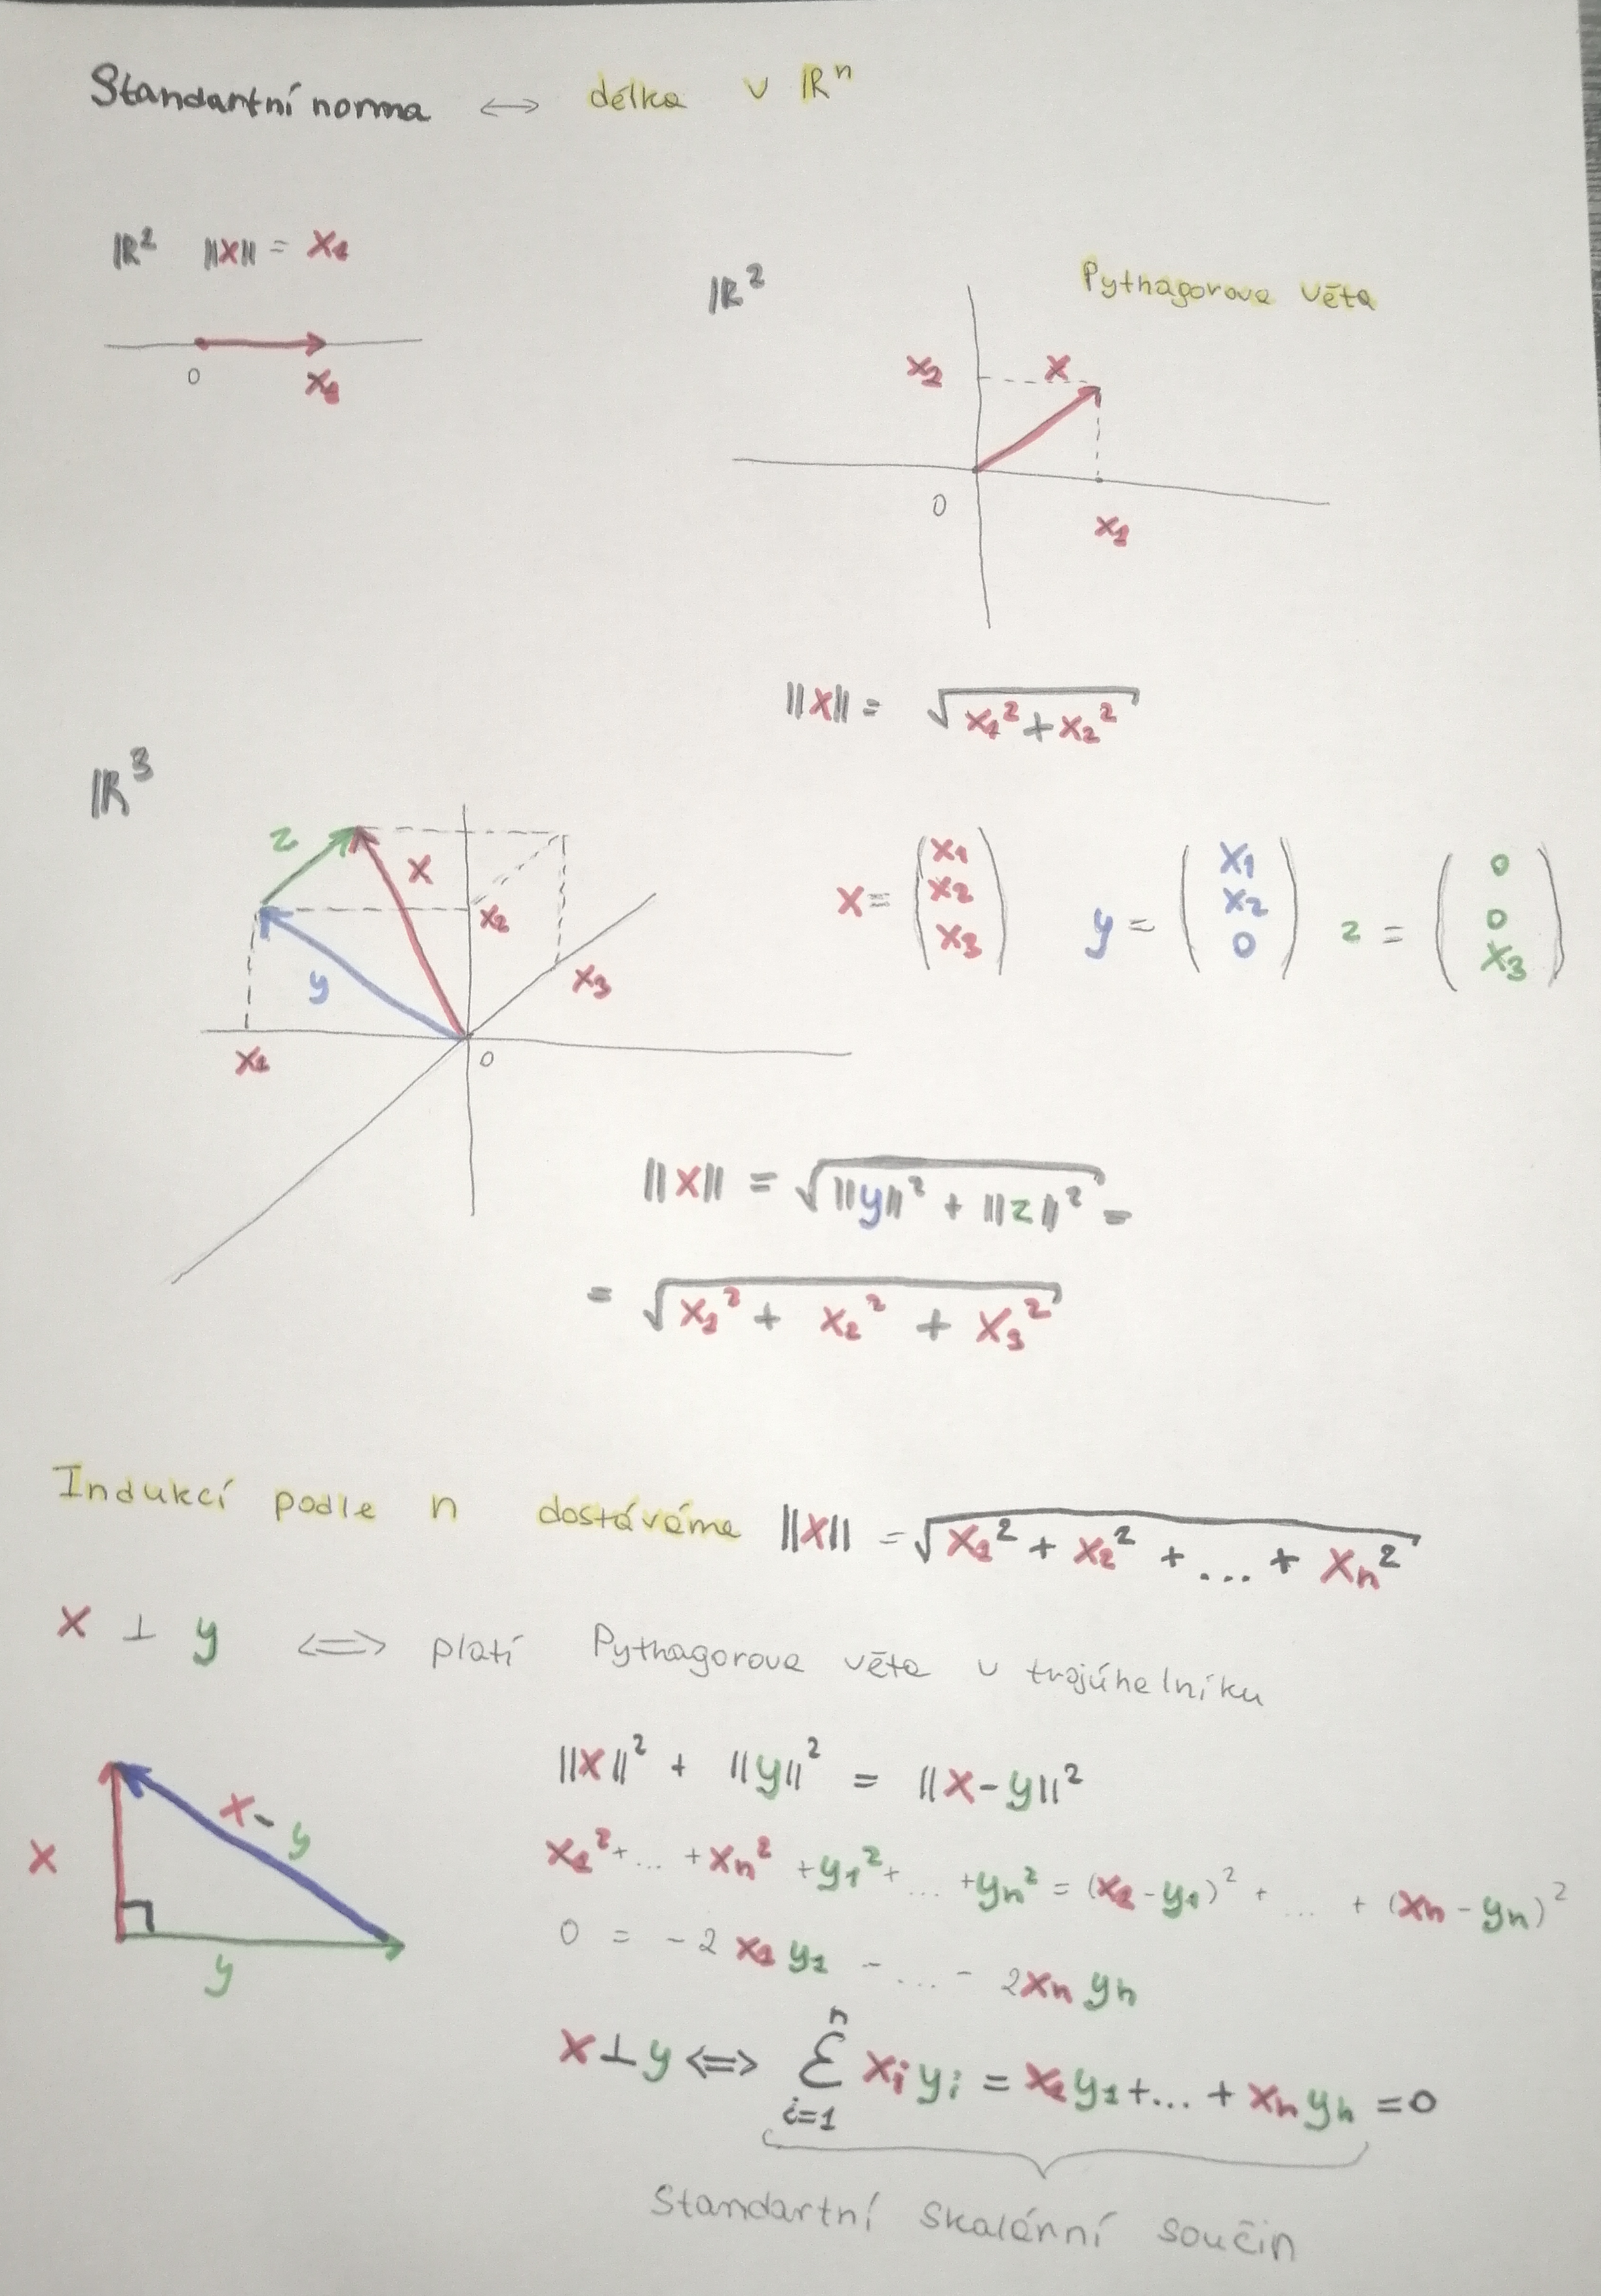 Standartní norma ⟷ délka v ℝⁿ
ℝ² ||x|| = x₁
0 x₁
ℝ² Pythagorova věta
x₂ x
0 x₁
||x|| = √(x₁² + x₂²)
ℝ³
z x x₂ y x₃ x₁ 0
x = (x₁ x₂ x₃) y = (x₁ x₂ 0) z = (0 0 x₃)
||x|| = √(||y||² + ||z||²) =
= √(x₁² + x₂² + x₃²)
Indukcí podle n dostáváme ||x|| = √(x₁² + x₂² + ... + xₙ²)
x ⊥ y ⟺ platí Pythagorova věta v trojúhelníku
||x||² + ||y||² = ||x-y||²
x x-y y
x₁² + ... + xₙ² + y₁² + ... + yₙ² = (x₁ - y₁)² + ... + (xₙ - yₙ)²
0 = -2 x₁ y₁ - ... - 2xₙ yₙ
x ⊥ y ⟺ Σ i=1 n xᵢ yᵢ = x₁y₁ + ... + xₙ yₙ = 0
Standartní skalární součin